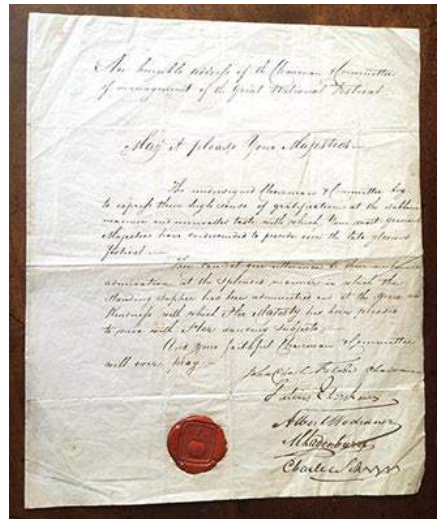 An humble address of the Chairman & Committee
of management of the Great National Festival
May it please Your Majesties
The undersigned Chairman & Committee beg
to express their high sense of gratification at the
manner and unrivalled taste with which Your most gracious
Majesties have condescended to preside over the late glorious
festival
They cannot give utterance to their
admiration at the splendid manner in which the
Standing Supper has been administered and at the grace and
Kindness with which Her Majesty has been pleased
to move with Her dancing subjects
And your faithful Chairman & Committee
will ever pray
John Chairman
Albert
Charles